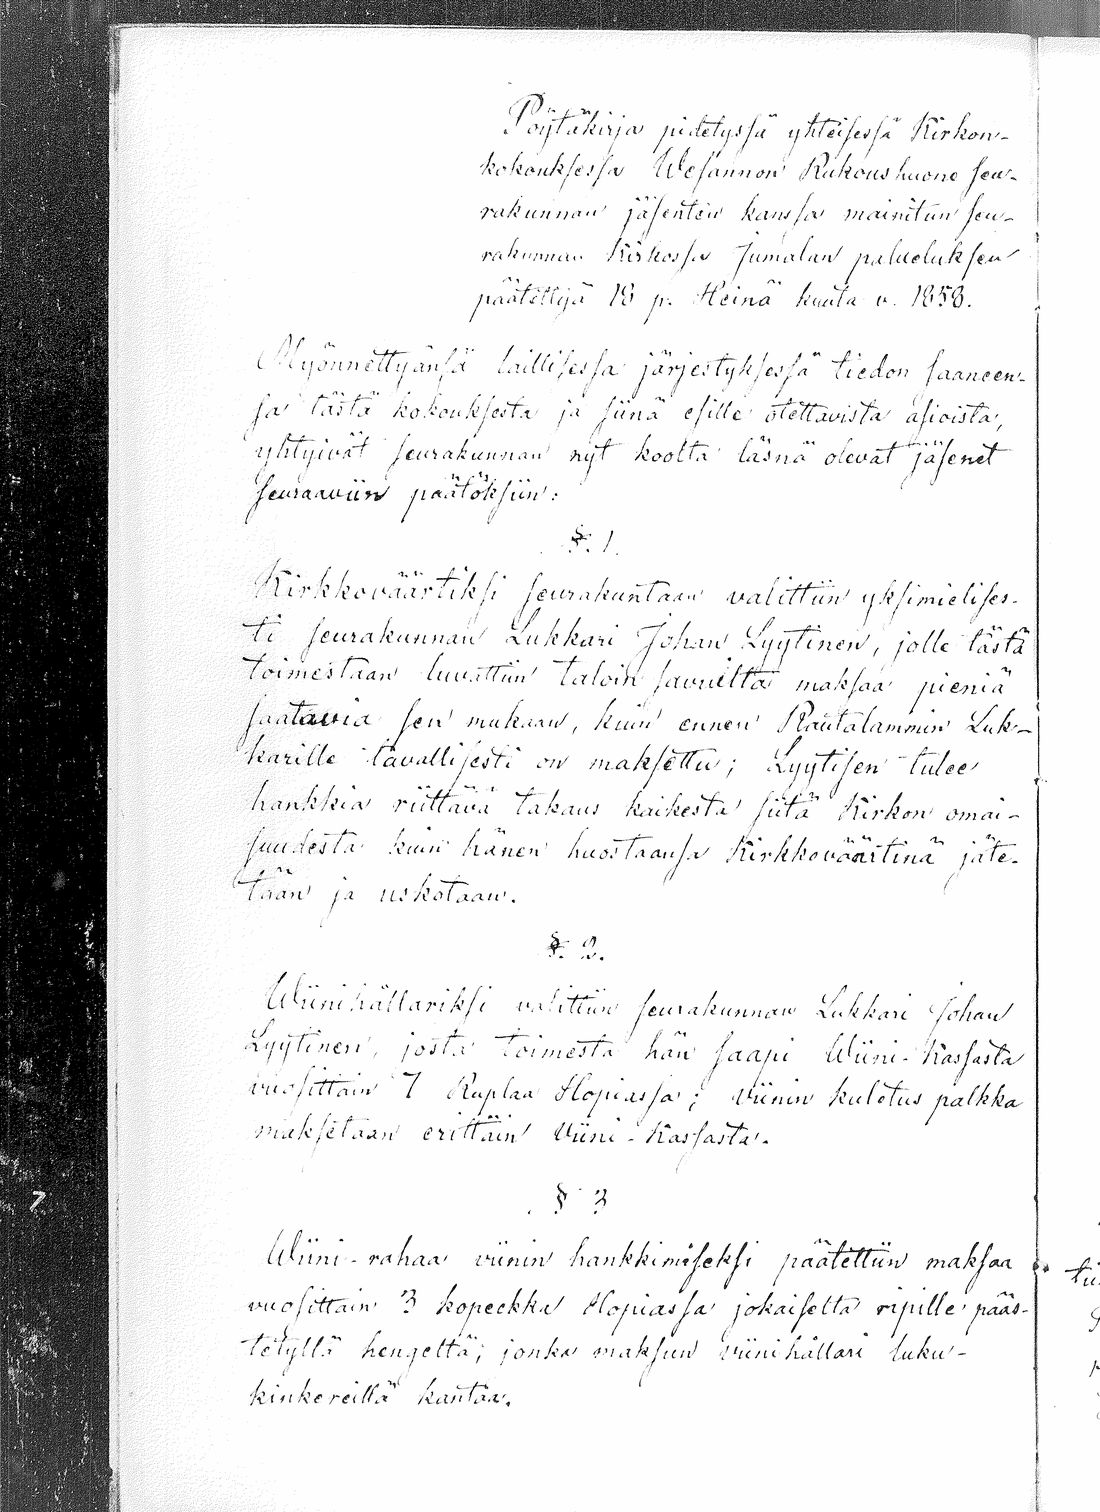 Pöytäkirja pidetyssä yhteisessä Kirkon-
kokouksessa Wesannon Rukoushuone seu-
rakunnan jäsenten kanssa mainitun seu-
rakunnan Kirkossa Jumalan palveluksen
päätettyä 18 p. Heinä kuuta v. 1858.
Myönnettyänsä laillisessa järjestyksessä tiedon saaneen-
sa tästä kokouksesta ja siinä esille otettavista asioista,
yhtyivät seurakunnan nyt koolta läsnä olevat jäsenet
seuraaviin päätöksiin:
§. 1.
Kirkkoväärtiksi seurakuntaan valittiin yksimielises-
ti seurakunnan Lukkari Johan Lyytinen, jolle tästä
toimestaan luvattiin taloin savuilta maksaa pieniä
saatavia sen mukaan, kuin ennen Rautalammin Luk-
karille tavallisesti on maksettu; Lyytisen tulee
hankkia riittävä takaus kaikesta siitä Kirkon omai-
suudesta kuin hänen huostaansa Kirkkoväärtinä jäte-
tään ja uskotaan.
§. 2.
Wiinihällariksi valittiin seurakunnan Lukkari Johan
Lyytinen, josta toimesta hän saapi Wiini-Kassasta
vuosittain 7 Ruplaa Hopiassa; viinin kuletus palkka
maksetaan erittäin Viini-Kassasta.
§ 3
Wiini-rahaa viinin hankkimiseksi päätettiin maksaa
vuosittain 3 kopeekka Hopiassa jokaiselta ripille pääs-
tetyllä hengeltä; jonka maksun viinihällari luku-
kinkereillä kantaa.
7